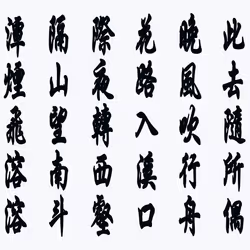 此去隨所偶
晚風吹行舟
花路入溪口
際夜轉西壑
隔山望南斗
潭煙飛溶溶